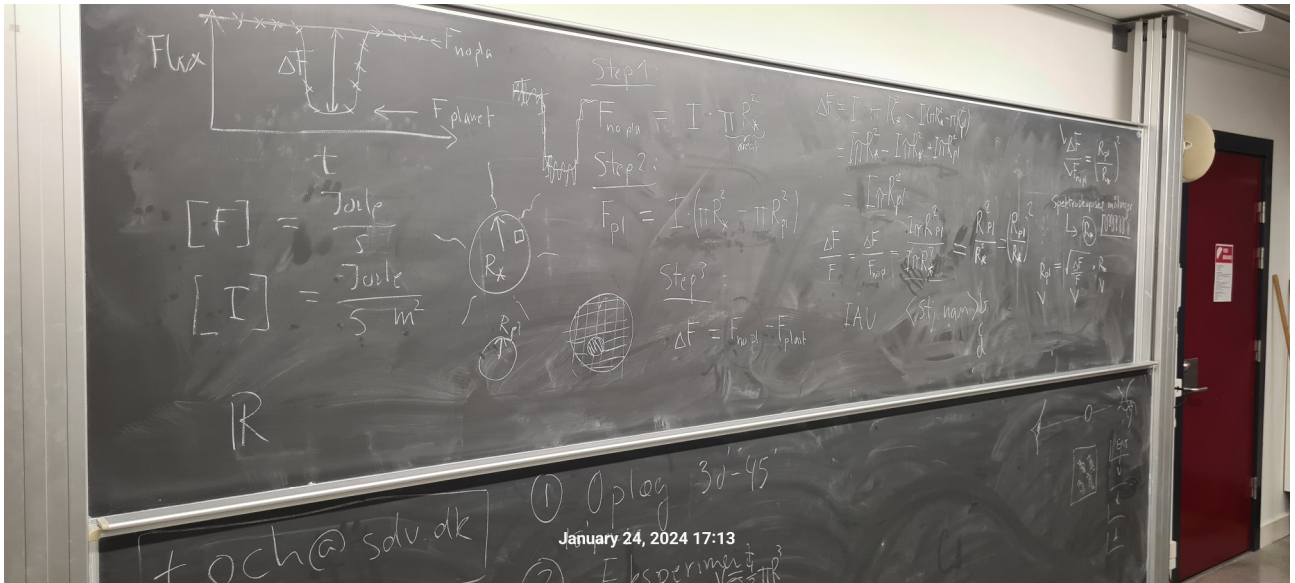 Flux
ΔF
F no pla
F planet
t
[F] = Joule / s
[I] = Joule / s m²
R
R_*
R_pl
Step 1:
F no pla = I · π R_*²
Step 2:
F_pl = I · (π R_*² - π R_pl²)
Step 3
ΔF = F no pl - F planet
ΔF = I · π R_*² - I(πR_*² - πR_pl²)
= IπR_*² - IπR_*² + IπR_pl²
= IπR_pl²
ΔF / F = ΔF / F no pl = IπR_pl² / IπR_*² = R_pl² / R_*² = (R_pl / R_*)²
IAU <stj navn> b
d
ΔF / F no pl = (R_pl / R_*)²
Spektroskopiske målinger
R_*
R_pl = √(ΔF / F) · R_*
① Oplæg 30'-45'
toch@sdu.dk
② Eksperiment
January 24, 2024 17:13